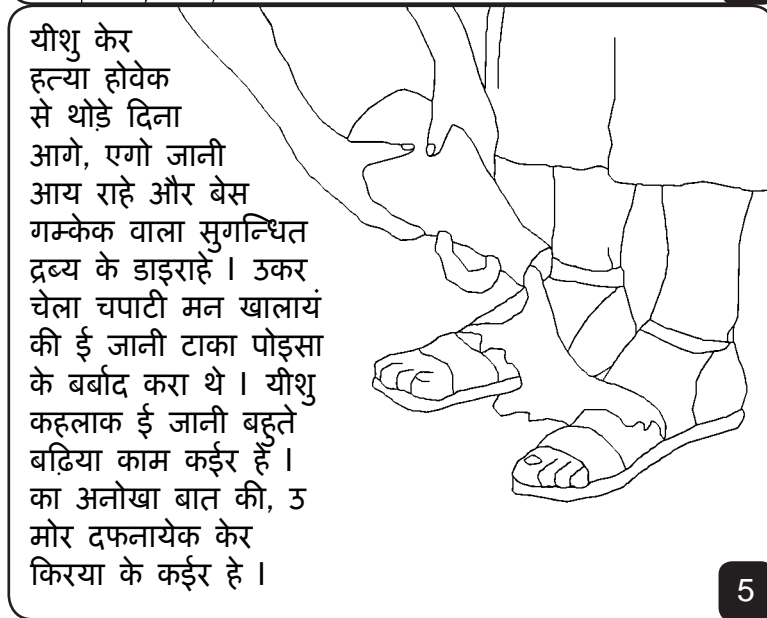 यीशु केर
हत्या होवेक
से थोड़े दिना
आगे, एगो जानी
आय राहे और बेस
गम्केक वाला सुगन्धित
द्रब्य के डाइराहे । उकर
चेला चपाटी मन खालायं
की ई जानी टाका पोइसा
के बर्बाद करा थे । यीशु
कहलाक ई जानी बहुते
बढ़िया काम कईर हे ।
का अनोखा बात की, उ
मोर दफनायेक केर
किरया के कईर हे ।
5